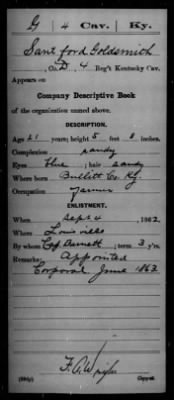 G | 4 Cav. | Ky.
Santford Goldsmith
Co. D, 4 Reg't Kentucky Cav.
Appears on
Company Descriptive Book
of the organization named above.
DESCRIPTION.
Age 21 years; height 5 feet 8 inches.
Complexion sandy
Eyes blue; hair sandy
Where born Bullitt Co. Ky.
Occupation farmer
ENLISTMENT.
When Sept 4, 1862.
Where Louisville
By whom Barnett; term 3 y'rs.
Remarks: Appointed
Corporal June 1863
F. A. Wright
Copyist.